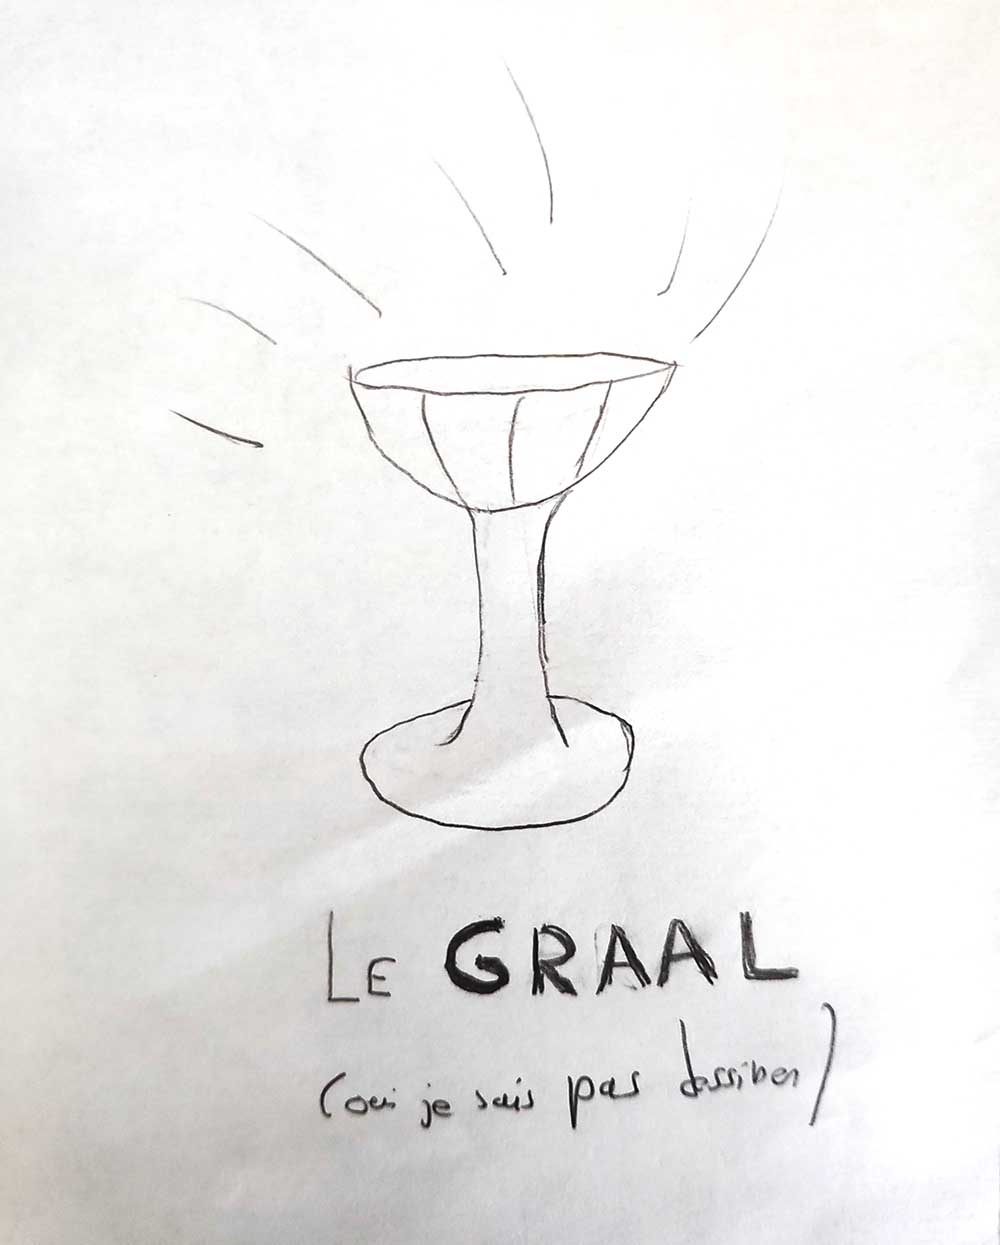 LE GRAAL
(oui je sais pas dessiner)